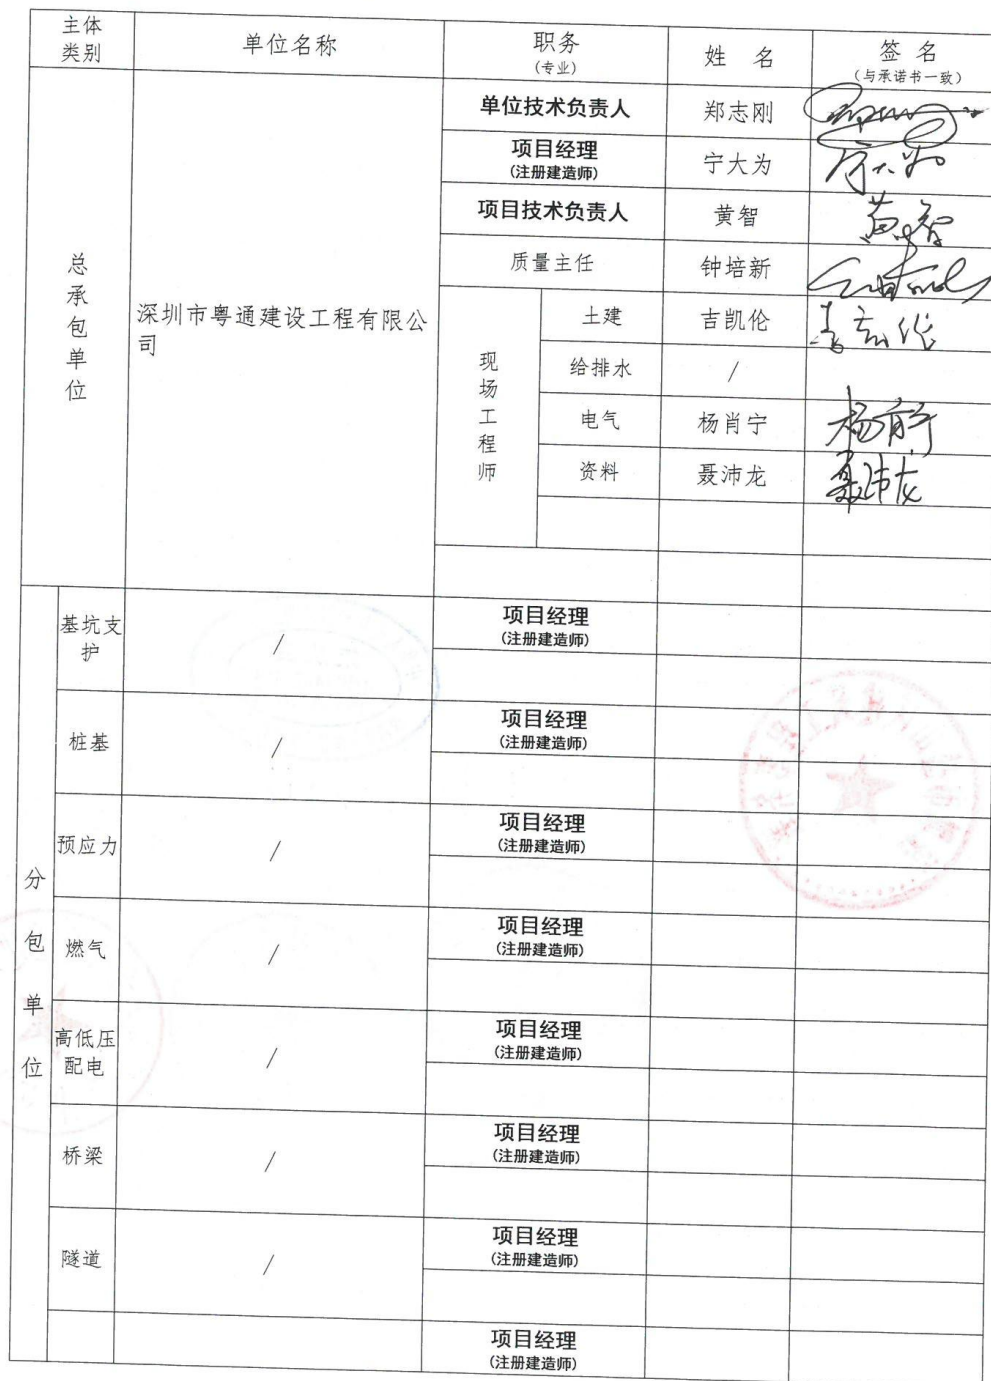 主体
类别
单位名称
职务
(专业)
姓 名
签 名
(与承诺书一致)
总承包单位
深圳市粤通建设工程有限公
司
单位技术负责人
郑志刚
项目经理
(注册建造师)
宁大为
宁大为
项目技术负责人
黄智
黄智
质量主任
钟培新
现场工程师
土建
吉凯伦
吉凯伦
给排水
/
电气
杨肖宁
杨肖宁
资料
聂沛龙
聂沛龙
分包单位
基坑支
护
/
项目经理
(注册建造师)
桩基
/
项目经理
(注册建造师)
预应力
/
项目经理
(注册建造师)
燃气
/
项目经理
(注册建造师)
高低压
配电
/
项目经理
(注册建造师)
桥梁
/
项目经理
(注册建造师)
隧道
/
项目经理
(注册建造师)
项目经理
(注册建造师)